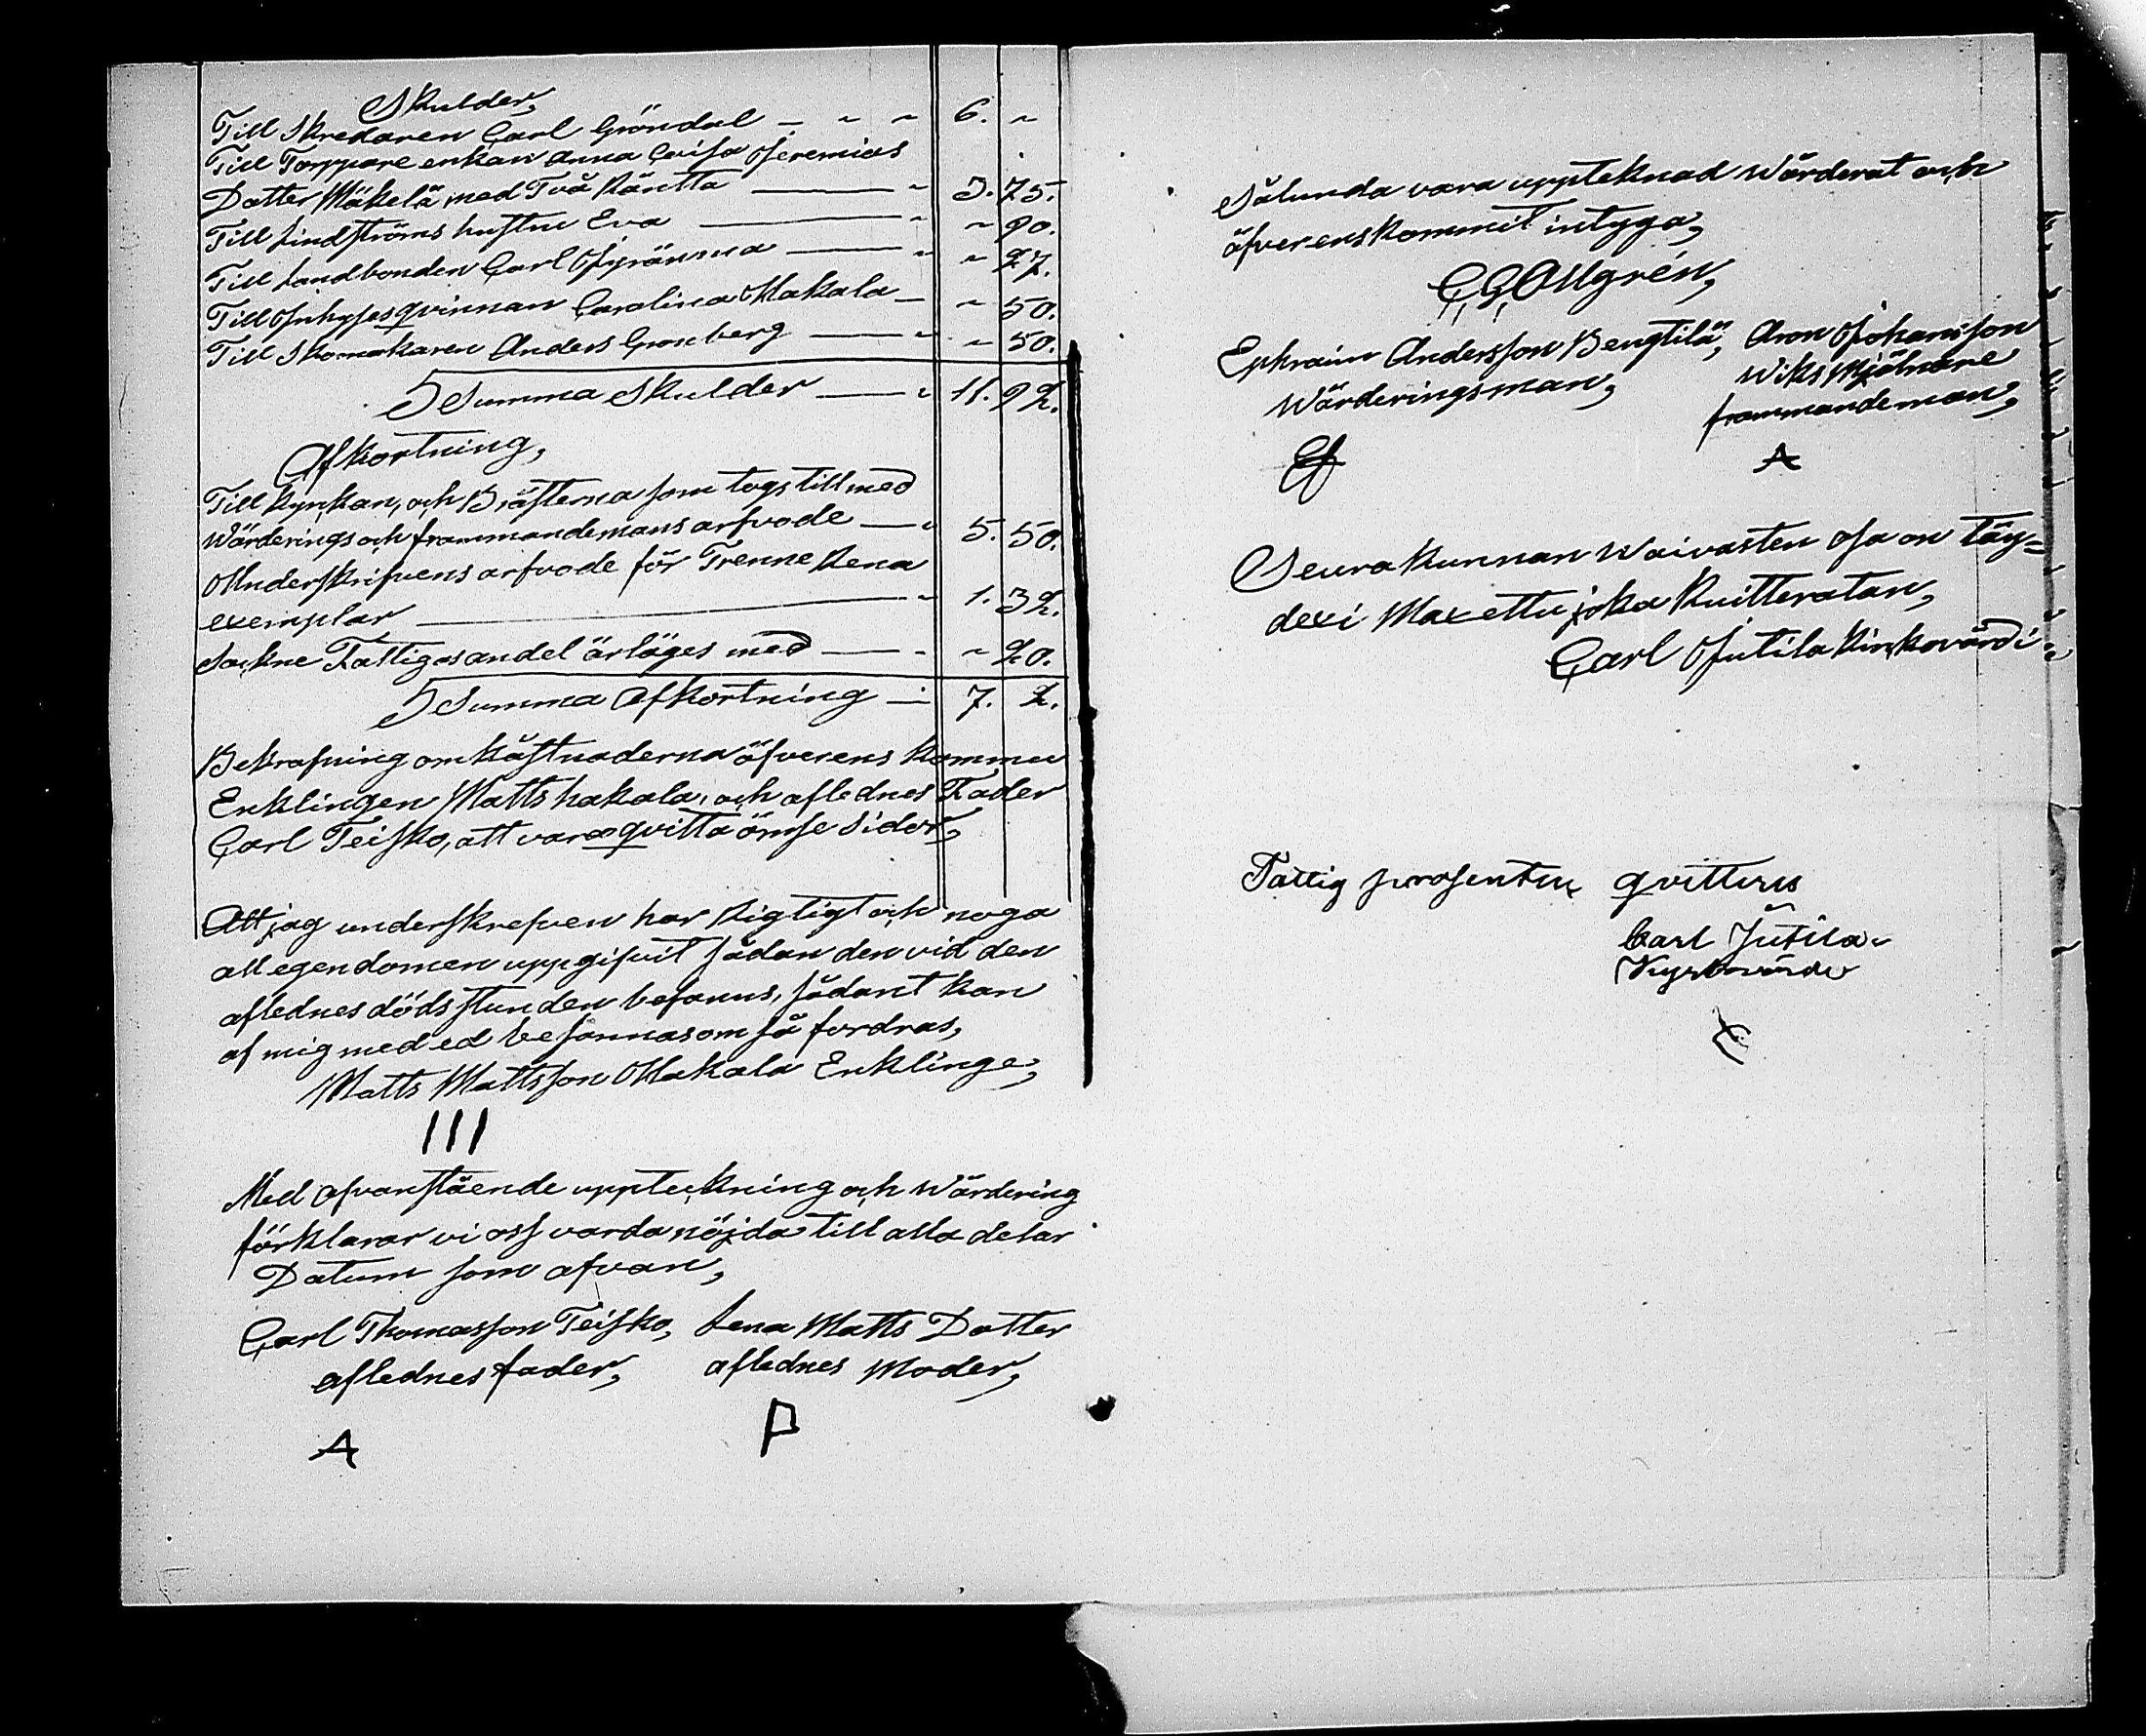 Skulder,
Till Skredaren Carl Gröndal — " " 6. "
Till Torppare enkan Anna Caisa Jeremias
Dotter Mäkelä med Två Räntta — " 3. 75.
Till Lindströms hustru Eva — " " 90.
Till Landbonden Carl Jyränma — " " 27.
Till Inhyses qvinnan Carolina Hakala — " 50.
Till Skomakaren Anders Gronberg — " " 50.
Summa Skulder — " 11. 92.
Afkortning,
Till kyrkan, och Bristerna som togs till med
Wärderings och frammandemans arfvode — " 5. 50.
Underskrifvens arfvode för Trenne Rena
exemplar — " 1. 32.
Sockne Fattigas andel ärläges med — " " 20.
Summa Afkortning — " 7. 2.
Bekrafning omkåstnaderna öfverens kommu
Enklingen Matts hakala, och aflednes Fader
Carl Teisko, att vara qvitta ömse sidor,
Att jag underskrefven har Rigtigt och noga
all egendomen uppgifvit sådan den vid den
aflednes dödsstunden befanns, sådant kan
af mig med ed besannas om så fordras,
Matts Mattsson Hakala Enklinge,
III
Med ofvanstående uppteckning och wärdering
förklarar vi oss varda nöjda till alla delar
Datum som ofvan,
Carl Thomasson Teisko, Lena Matts Dotter
aflednes fader, aflednes Moder,
A P
Sålunda vara uppteknad wärderat och
öfverenskommit intyga,
C, G, Allgrén,
Ephraim Andersson Bengtilä, Aron Johansson
Wärderingsman, Wiks Mjölnare
frammandeman,
Ef A
Seurakunnan waivasten osa on täy=
dexi Maxettu joka kuitteratan,
Carl Jutila Kirkovärdi
Fattig prosenten qvitteras
Carl Jutila
Kyrkovärde